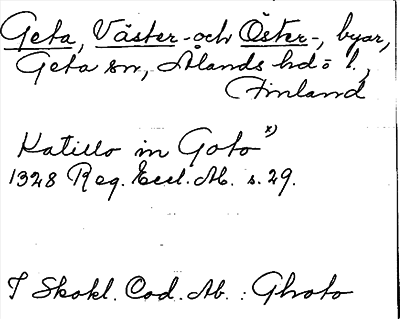 Geta, Väster- och Öster-, byar,
Geta sn, Ålands hd o l.,
Finland
Katillo in Goto x)
1328 Reg. Eccl. Ab. s. 29.
I Skokl. Cod. Ab. : Ghoto